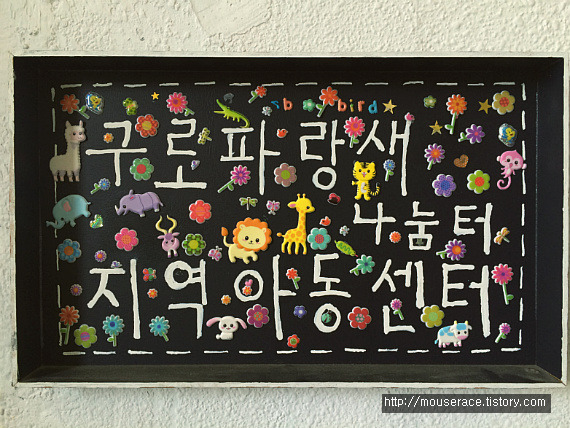 bird
구로파랑새
나눔터
지역아동센터
http://mouserace.tistory.com